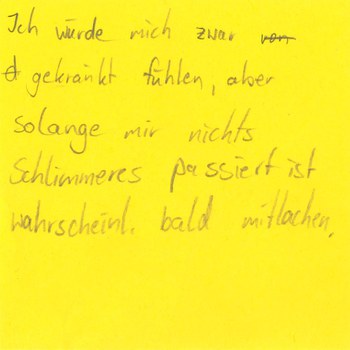 Ich würde mich zwar
gekränkt fühlen, aber
solange mir nichts
schlimmeres passiert ist
wahrscheinl. bald mitlachen.